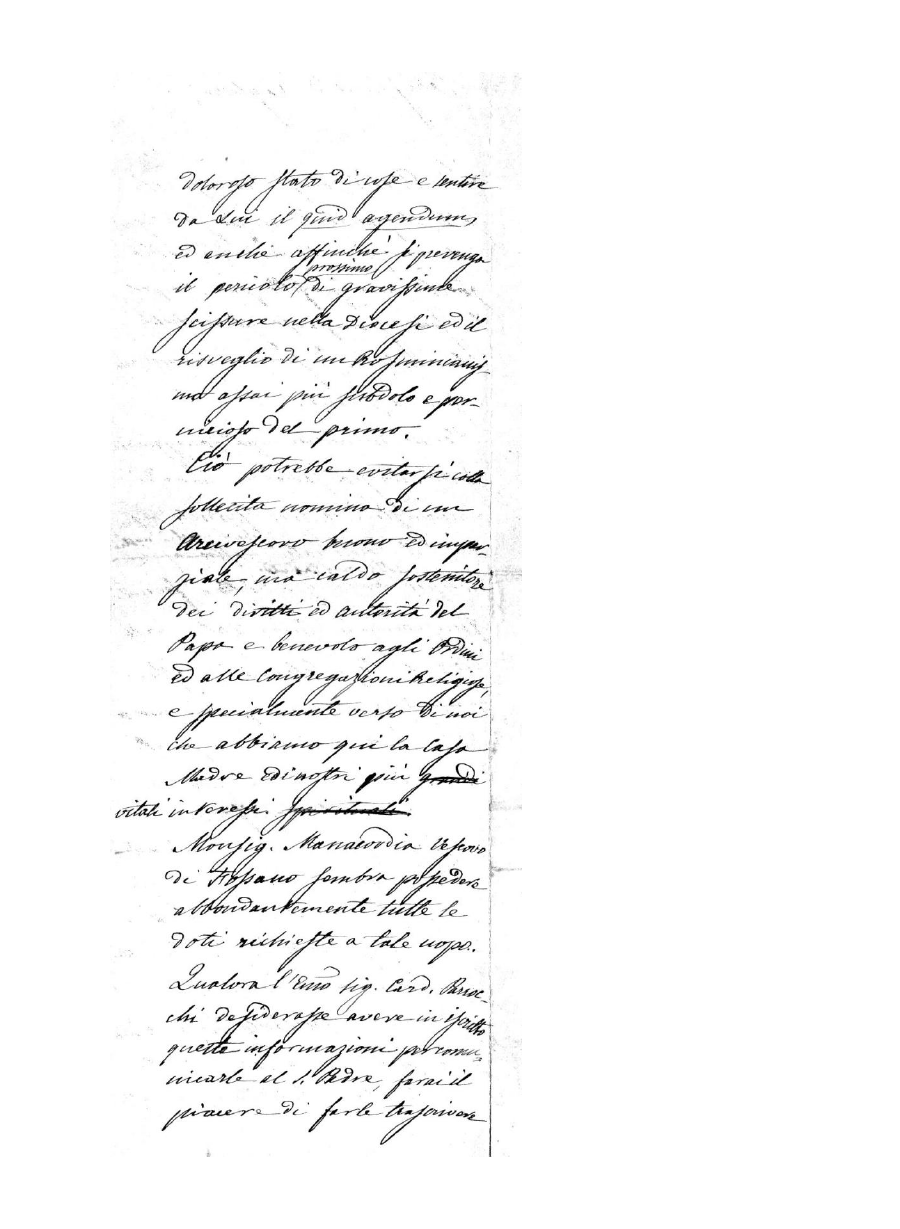 doloroso stato di cose e sentire
da Lui il quid agendum,
ed anche affinchè si prevenga
prossimo
il pericolo di gravissime
scissure nella Diocesi ed il
risveglio di un Rosminianis-
mo assai più subdolo e per-
nicioso del primo.
Ciò potrebbe evitarsi colla
sollecita nomina di un
Arcivescovo buono ed impar-
ziale, ma caldo sostenitore
dei diritti ed autorità del
Papa e benevolo agli Ordini
ed alle Congregazioni Religiose,
e specialmente verso di noi
che abbiamo qui la Casa
Madre ed i nostri più grandi
vitali interessi spirituali.
Monsig. Manacorda Vescovo
di Fossano sembra possedere
abbondantemente tutte le
doti richieste a tale uopo.
Qualora l'Emo sig. Card. Paroc-
chi desiderasse avere in iscritto
queste informazioni per comu-
nicarle al S. Padre, farai il
piacere di farle trascrivere